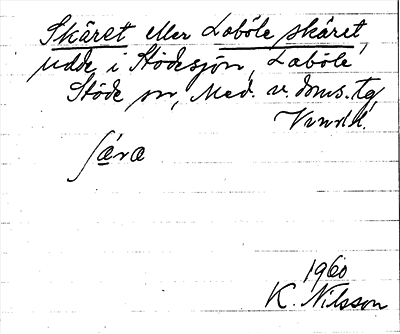 Skäret eller Laböle skäret,
udde i Stödesjön, Laböle
Stöde sn, Med. v. doms. tg
Vnrld.
sära
1960
K. Nilsson